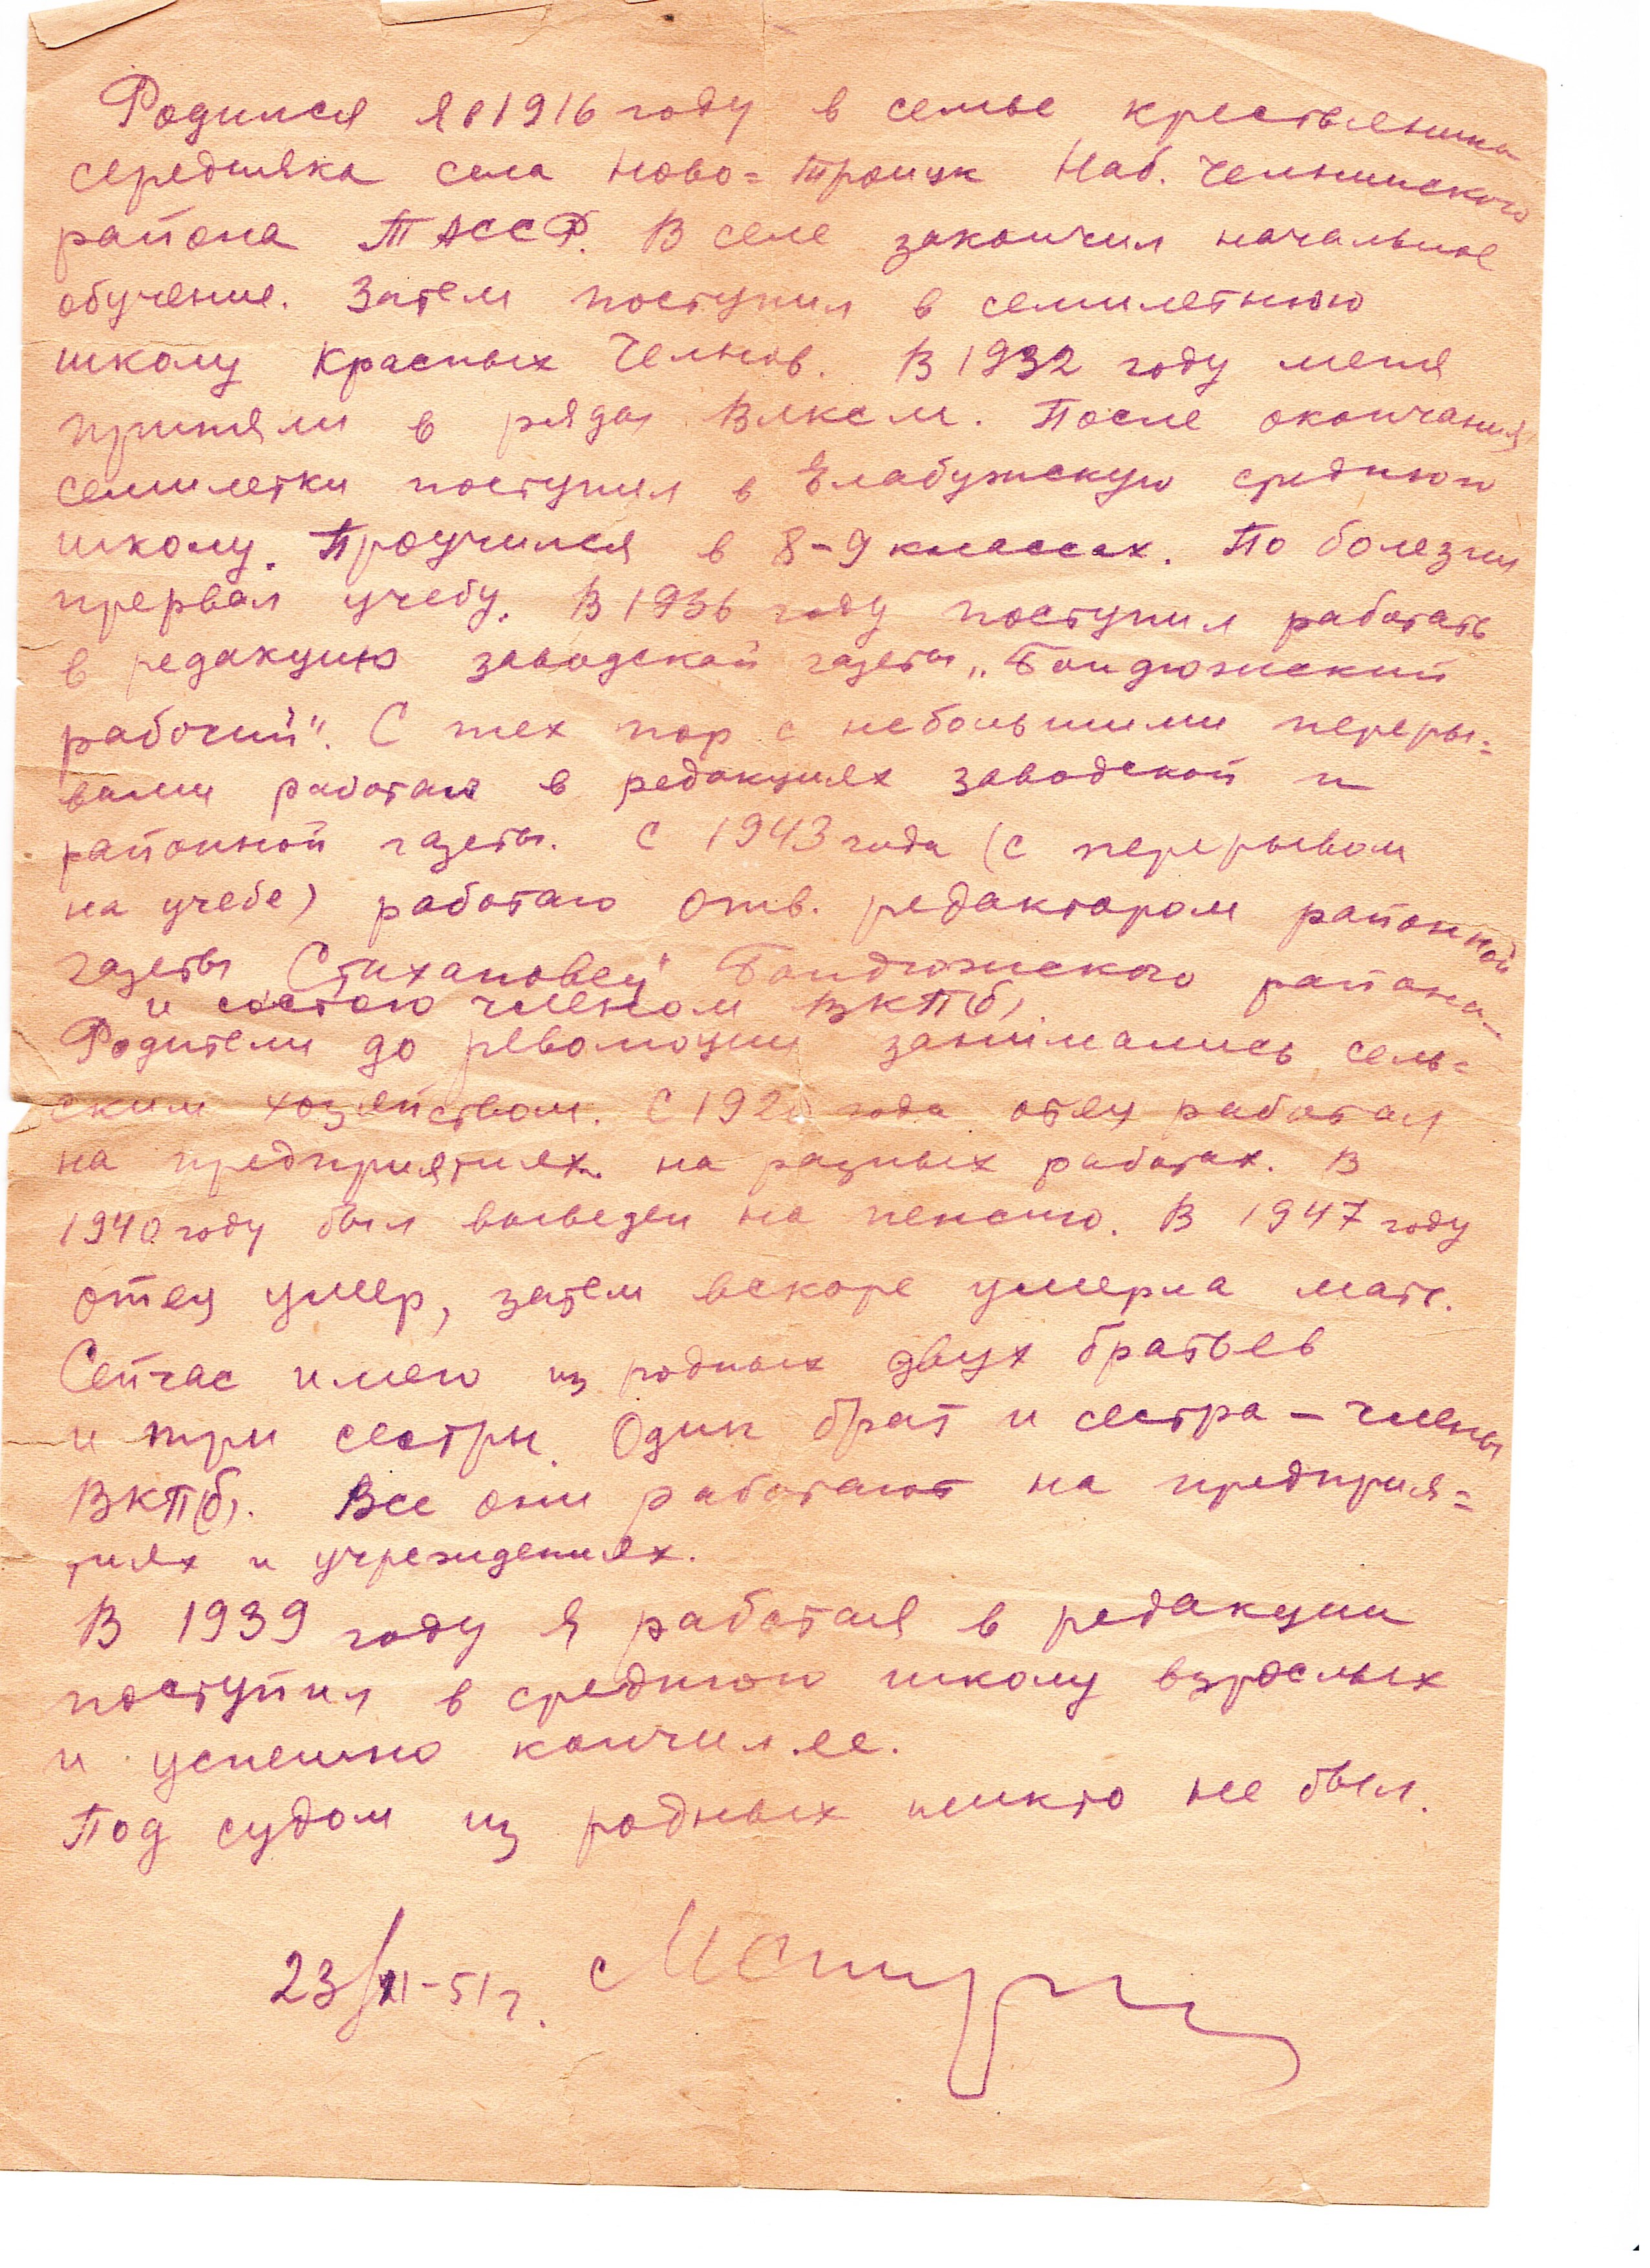 Родился я в 1916 году в семье крестьянина
середняка села Ново=Троицк Наб. Челнинского
района ТАССР. В селе закончил начальное
обучение. Затем поступил в семилетнюю
школу Красных Челнов. В 1932 году меня
приняли в ряды ВЛКСМ. После окончания
семилетки поступил в Елабужскую среднюю
школу. Проучился в 8-9 классах. По болезни
прервал учебу. В 1936 году поступил работать
в редакцию заводской газеты „Бондюжский
рабочий". С тех пор с небольшими переры=
вами работаю в редакциях заводской и
районной газеты. С 1943 года (с перерывом
на учебе) работаю отв. редактором районной
газеты Стахановец" Бондюжского района
и состою членом ВКП(б).
Родители до революции занимались сель=
ским хозяйством. С 192 года отец работал
на предприятиях на разных работах. В
1940 году был выведен на пенсию. В 1947 году
отец умер, затем вскоре умерла мать.
Сейчас имею из родных двух братьев
и три сестры. Один брат и сестра – члены
ВКП(б). Все они работают на предприя=
тиях и учреждениях.
В 1939 году я работая в редакции
поступил в среднюю школу взрослых
и успешно кончил ее.
Под судом из родных никто не был.
23/XI-51 г.